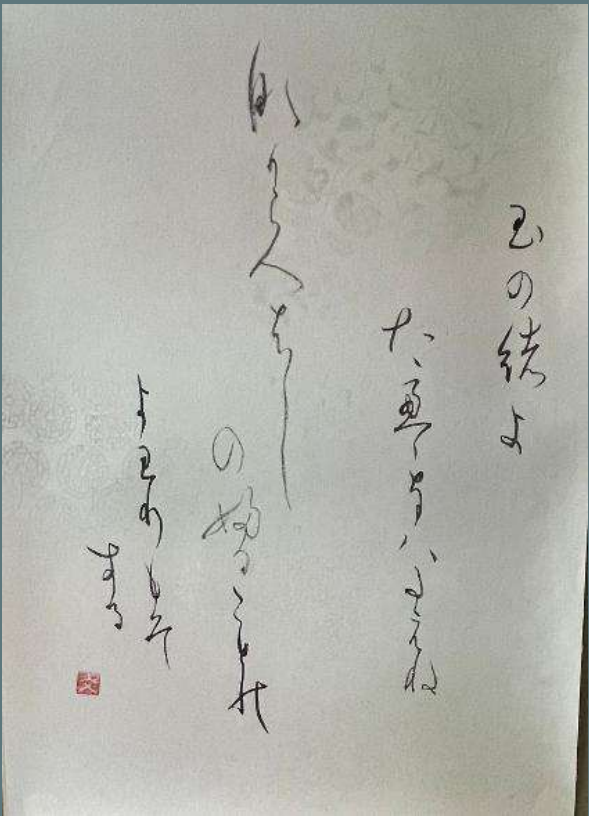 玉の緒よ
たえなハたえね
那からへはし
の婦ることの
よわりもそ
する